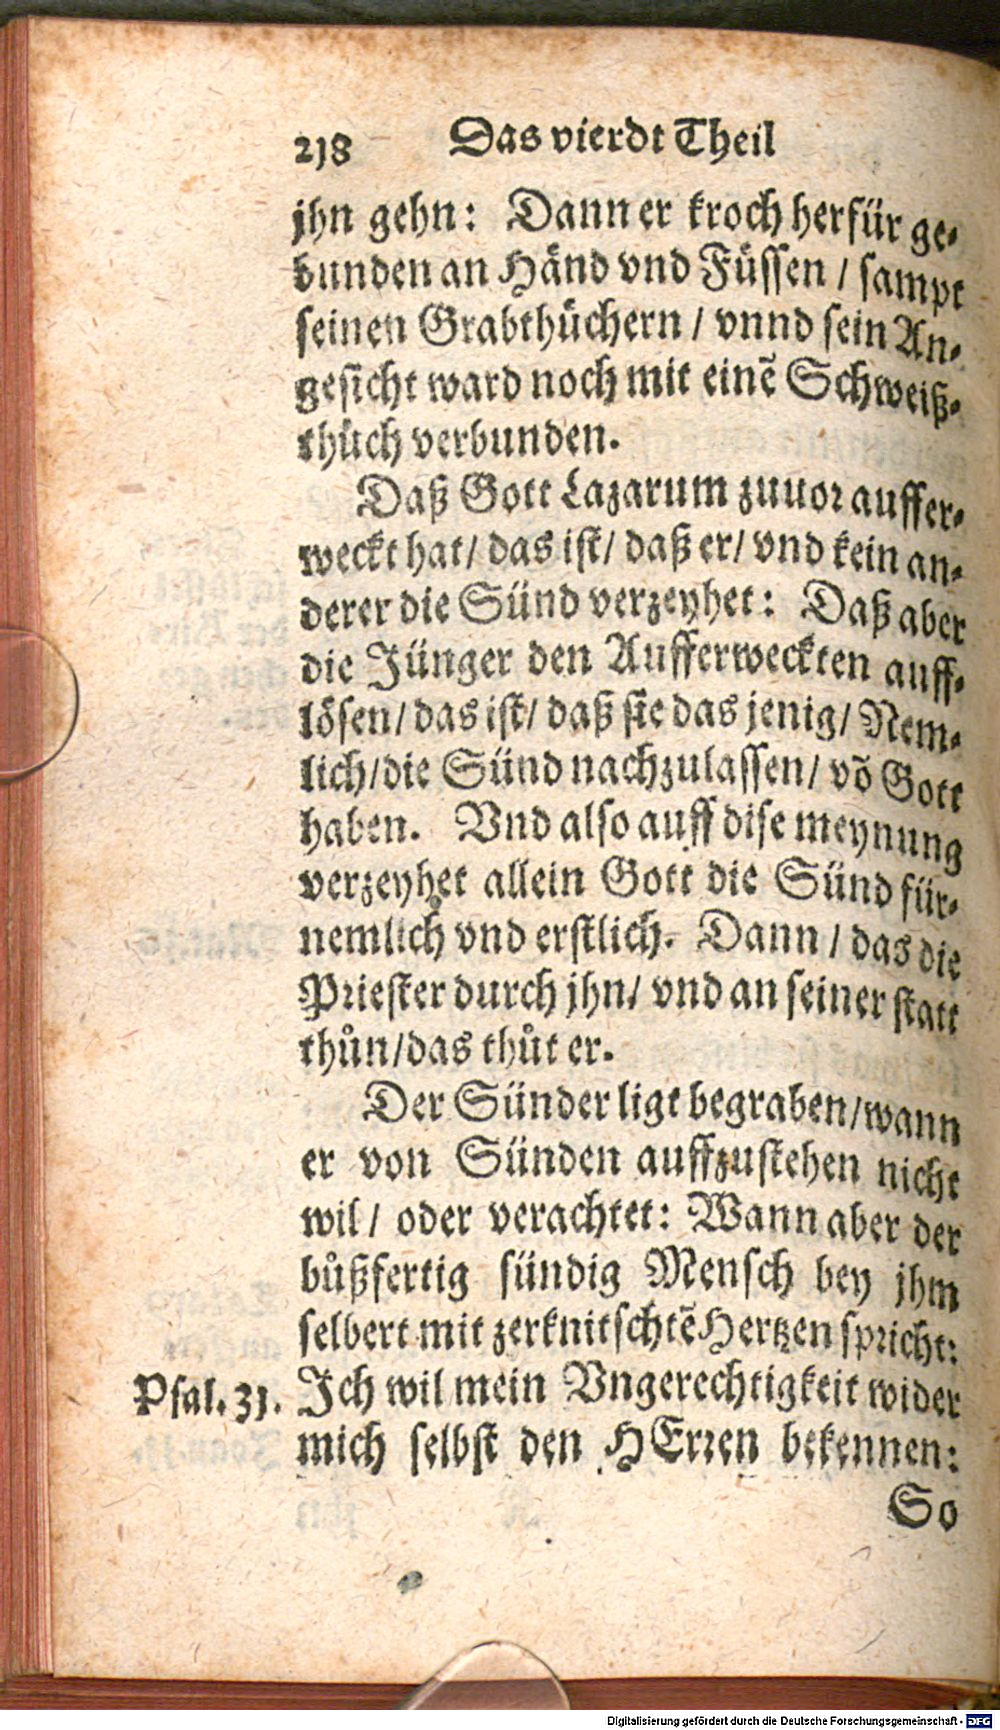 218 Das vierdt Theil
jhn gehn: Dann er kroch herfür ge-
bunden an Händ vnd Füssen / sampt
seinen Grabthüchern / vnnd sein An-
gesicht ward noch mit einẽ Schweiß-
thůch verbunden.
Daß Gott Lazarum zuuor auffer-
weckt hat/ das ist/ daß er/ vnd kein an-
derer die Sünd verzeyhet: Daß aber
die Jünger den Aufferweckten auff-
lösen/ das ist/ daß sie das jenig/ Nem-
lich/die Sünd nachzulassen/ võ Gott
haben. Vnd also auff dise meynung
verzeyhet allein Gott die Sünd für-
nemlich vnd erstlich. Dann / das die
Priester durch jhn/ vnd an seiner statt
thůn/das thůt er.
Der Sünder ligt begraben/wann
er von Sünden auffzustehen nicht
wil/ oder verachtet: Wann aber der
bůßfertig sündig Mensch bey jhm
selbert mit zerknitschtẽ Hertzen spricht:
Psal. 31. Ich wil mein Vngerechtigkeit wider
mich selbst den HErren bekennen:
So
Digitalisierung gefördert durch die Deutsche Forschungsgemeinschaft - DFG